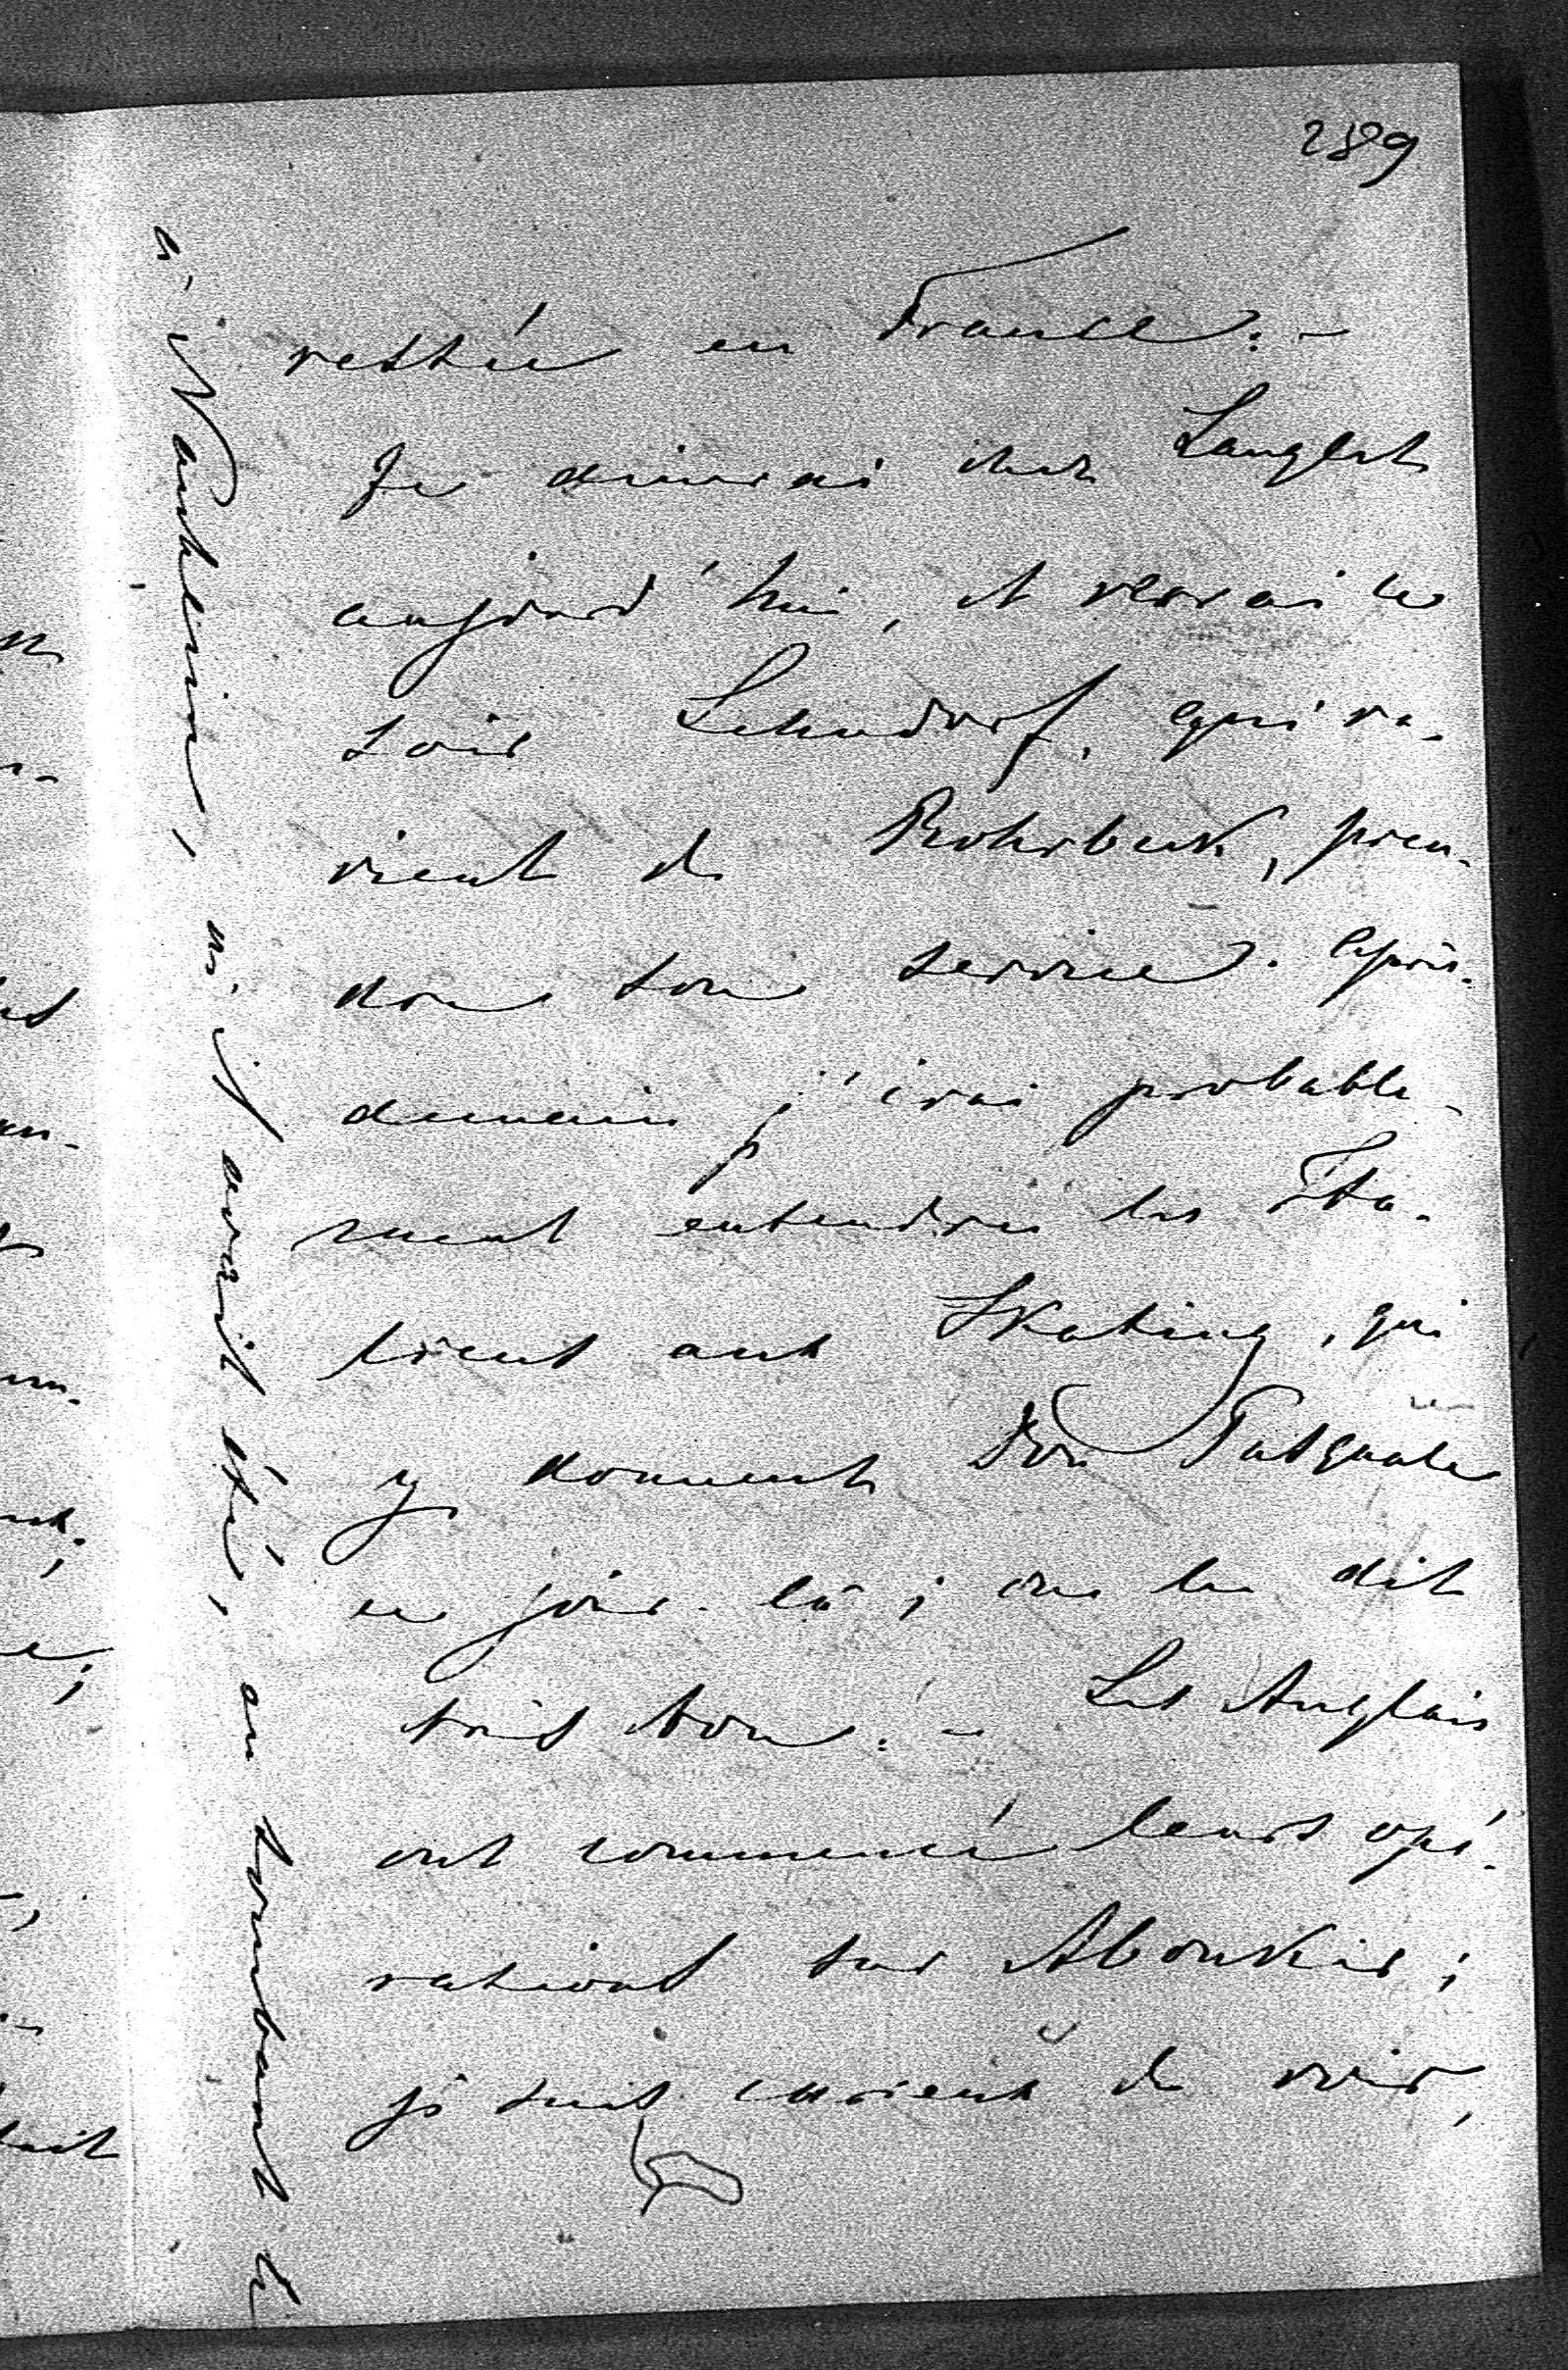 289
restée en France. -
Je dinerai chez Langlet
aujourd'hui, et verrai ce
soir Lehndorf, qui re-
vient de Rohrbeck, pren-
dre son service. Après-
demain j'irai probable-
ment entendre les Ita-
liens aux Skating, qui
y donnent Don Pasquale
ce jour-là; on le dit
très bon. - Les Anglais
ont commencé leurs opé-
rations sur Aboukir;
je suis curieux de voir,
à
n'y avait été, en tombant le